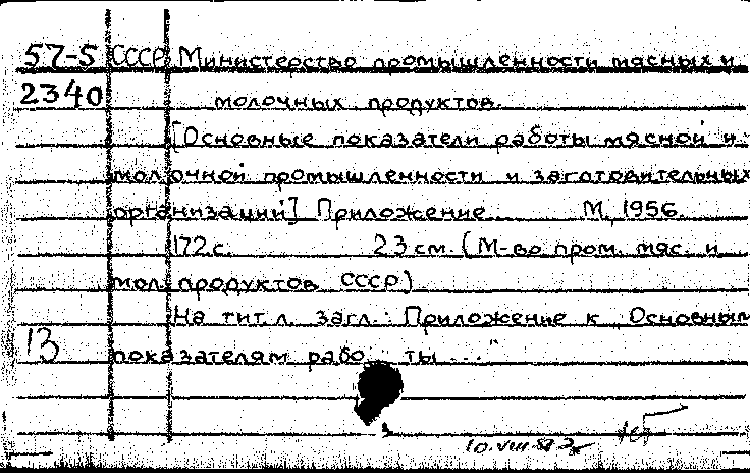 57-5 СССР Министерство промышленности мясных и
2340 молочных продуктов.
[Основные показатели работы мясной и
молочной промышленности и заготовительных
организаций] Приложение. М, 1956.
172 с. 23 см. (М-во пром. мяс. и
мол. продуктов СССР)
На тит. л. загл.: Приложение к Основным
13 показателям рабо ты ..."
10.VIII.57